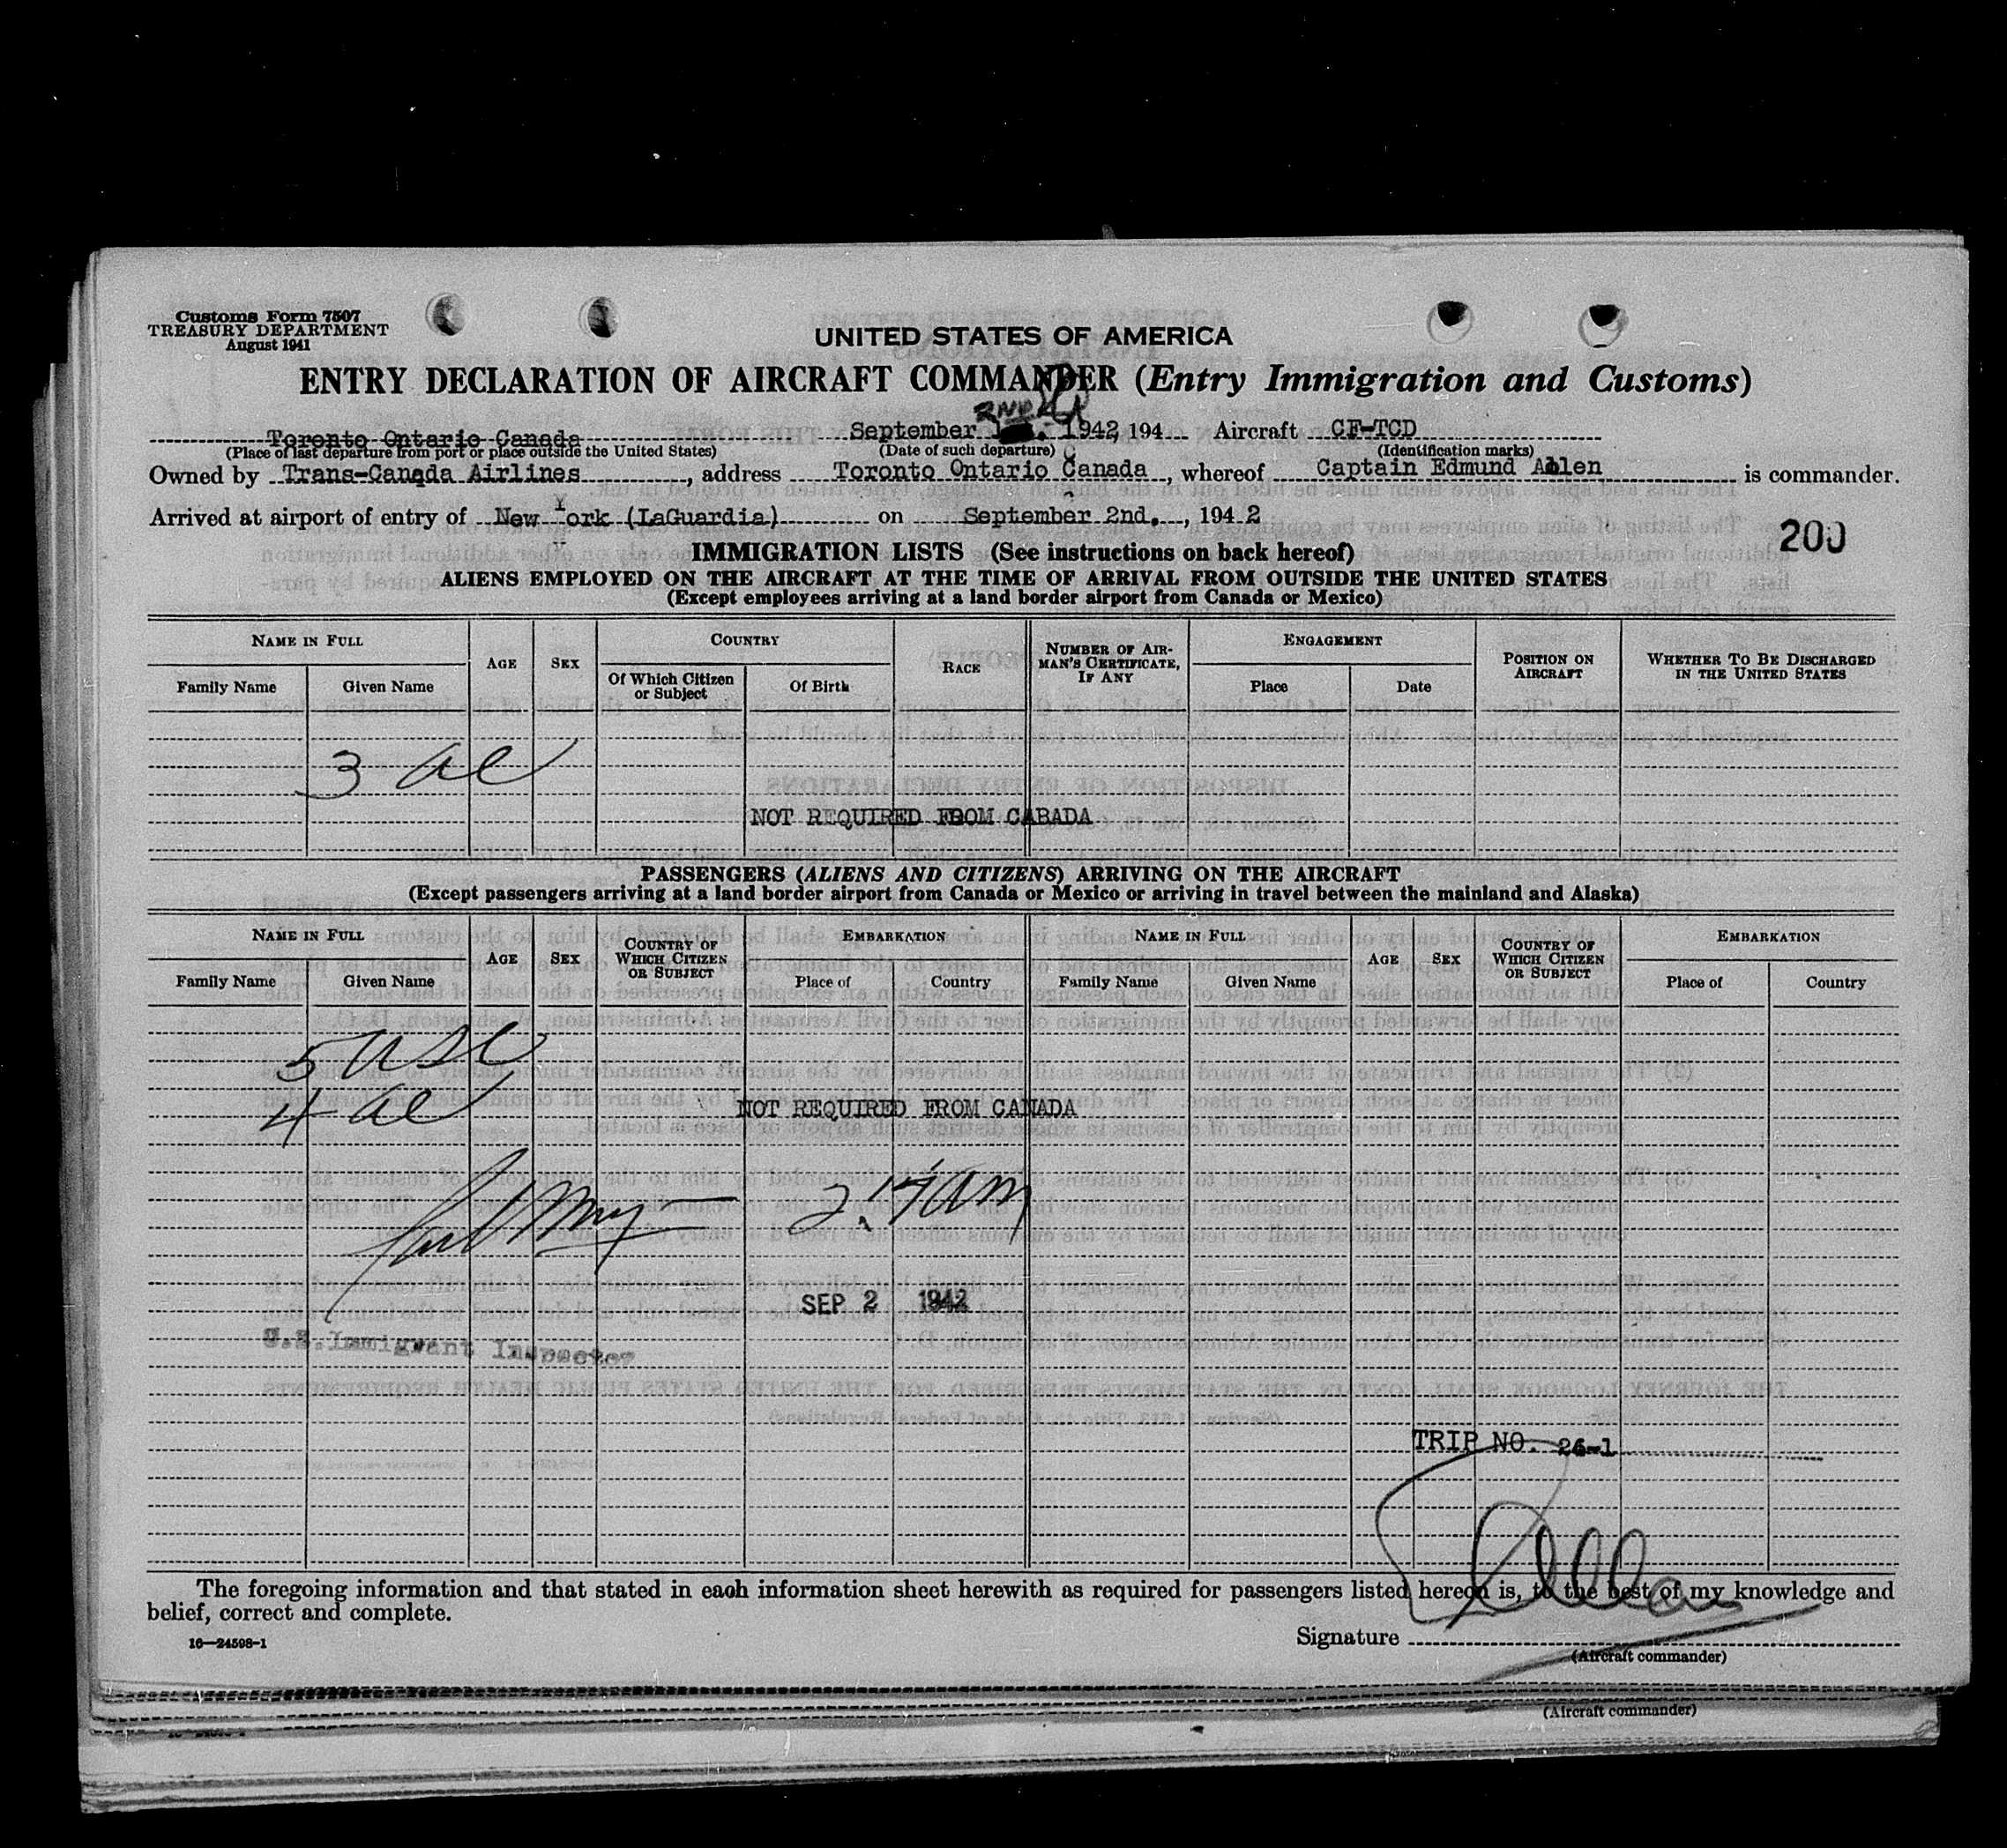 Customs Form 7507
TREASURY DEPARTMENT
August 1941
UNITED STATES OF AMERICA
ENTRY DECLARATION OF AIRCRAFT COMMANDER (Entry Immigration and Customs)
2ND
Toronto Ontario Canada September 1942, 194 Aircraft CF-TCD
(Place of last departure from port or place outside the United States) (Date of such departure) (Identification marks)
Owned by Trans-Canada Airlines, address Toronto Ontario Canada, whereof Captain Edmund Allen is commander.
Arrived at airport of entry of New York (LaGuardia) on September 2nd., 1942
200
IMMIGRATION LISTS (See instructions on back hereof)
ALIENS EMPLOYED ON THE AIRCRAFT AT THE TIME OF ARRIVAL FROM OUTSIDE THE UNITED STATES
(Except employees arriving at a land border airport from Canada or Mexico)
NAME IN FULL AGE SEX COUNTRY RACE NUMBER OF AIRMAN'S CERTIFICATE, IF ANY ENGAGEMENT POSITION ON AIRCRAFT WHETHER TO BE DISCHARGED IN THE UNITED STATES
Family Name Given Name Of Which Citizen or Subject Of Birth Place Date
3 al
NOT REQUIRED FROM CABADA
PASSENGERS (ALIENS AND CITIZENS) ARRIVING ON THE AIRCRAFT
(Except passengers arriving at a land border airport from Canada or Mexico or arriving in travel between the mainland and Alaska)
NAME IN FULL AGE SEX COUNTRY OF WHICH CITIZEN OR SUBJECT EMBARKATION NAME IN FULL AGE SEX COUNTRY OF WHICH CITIZEN OR SUBJECT EMBARKATION
Family Name Given Name Place of Country Family Name Given Name Place of Country
5 USC
4 al
NOT REQUIRED FROM CANADA
SEP 2 1942
U.S. Immigrant Inspector
TRIP NO. 26-1
The foregoing information and that stated in each information sheet herewith as required for passengers listed hereon is, to the best of my knowledge and
belief, correct and complete.
16—24598-1
Signature
(Aircraft commander)
(Aircraft commander)